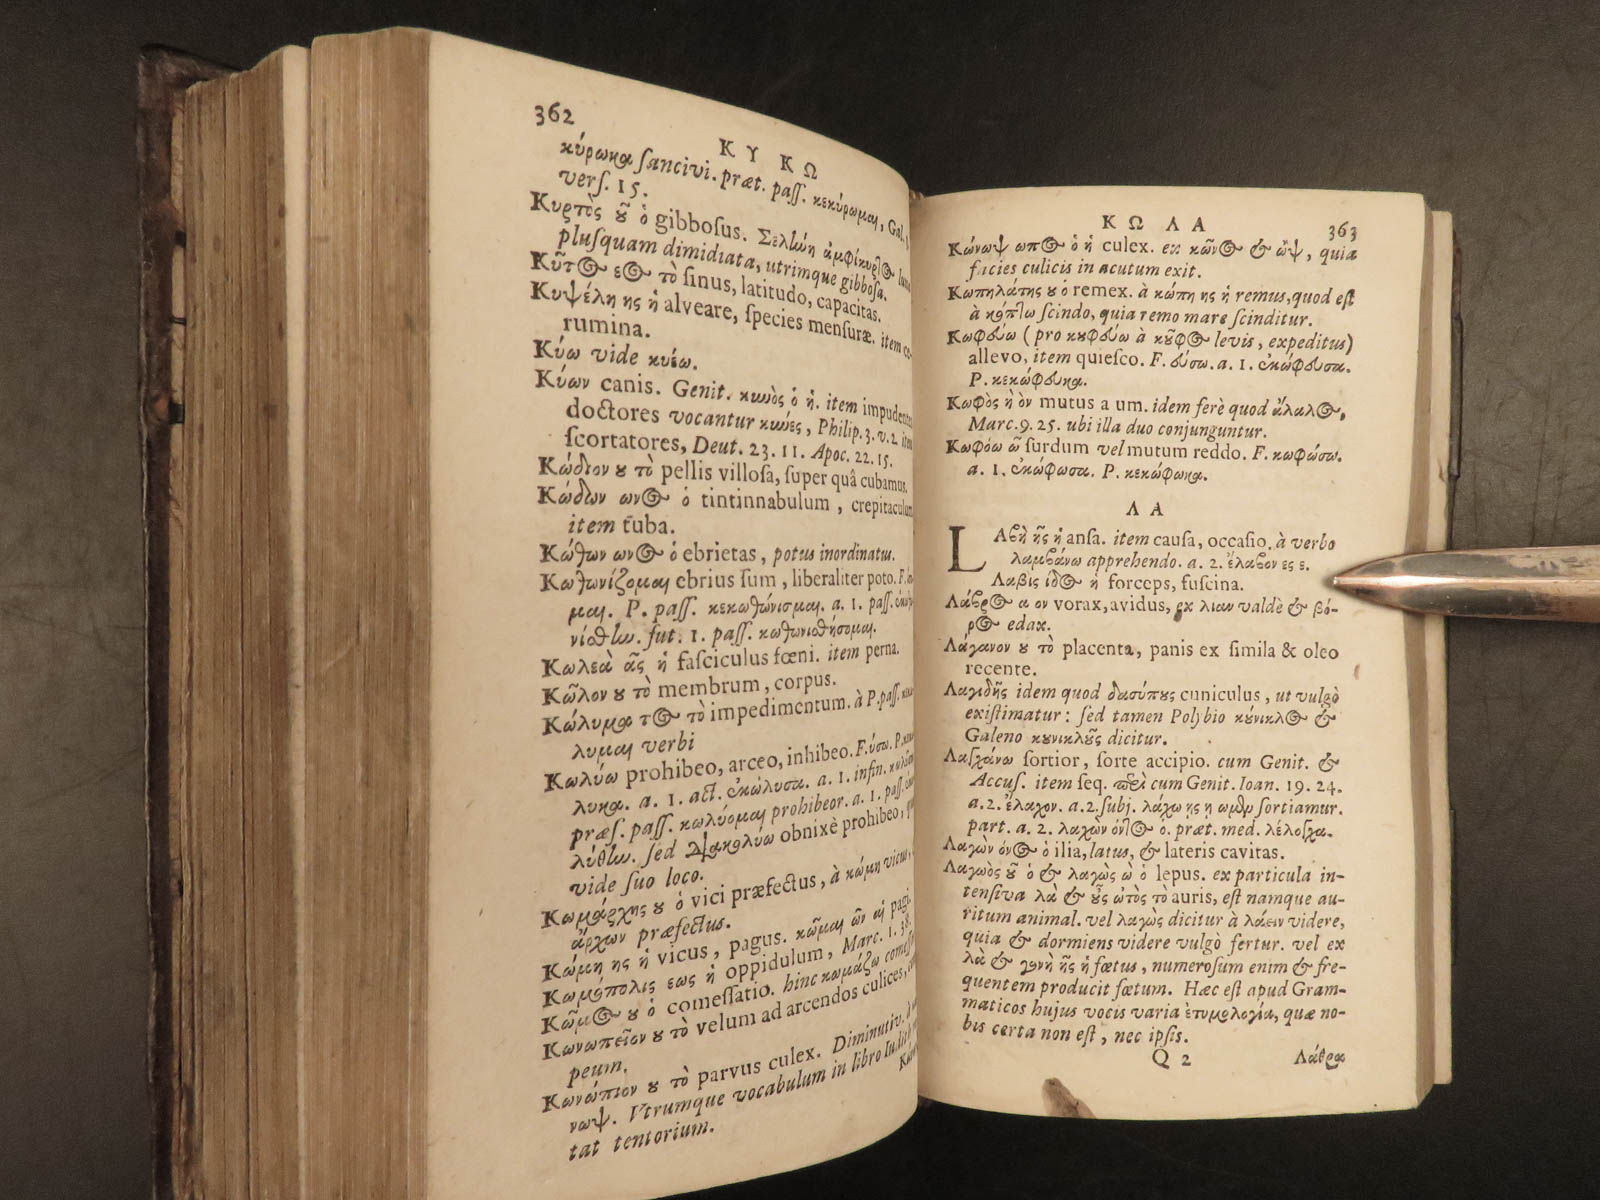 362
Κ Υ Κ Ω
κύρωκα ſancivi. præt. paſſ. κεκύρωμαι, Gal.
verſ. 15.
Κυρτὸς ȣ͂ ὁ gibboſus. Σελήνη ἀμφίκυρτος luna
pluſquam dimidiata, utrimque gibboſa.
Κῦτος εος τὸ ſinus, latitudo, capacitas.
Κυψέλη ης ἡ alveare, ſpecies menſuræ. item
rumina.
Κύω vide κυέω.
Κύων canis. Genit. κυνὸς ὁ ἡ. item impudentes
doctores vocantur κύνες, Philip. 3. v. 2. item
ſcortatores, Deut. 23. 11. Apoc. 22. 15.
Κώδιον ȣ τὸ pellis villoſa, ſuper quâ cubamus.
Κώδων ωνος ὁ tintinnabulum, crepitaculum
item tuba.
Κώθων ωνος ὁ ebrietas, potus inordinatus.
Κωθωνίζομαι ebrius ſum, liberaliter poto. F.
μαι. P. paſſ. κεκωθώνισμαι. a. 1. paſſ.
νίσθην. fut. 1. paſſ. κωθωνισθήσομαι.
Κωλεὰ ᾶς ἡ faſciculus fœni. item perna.
Κῶλον ȣ τὸ membrum, corpus.
Κώλυμα τος τὸ impedimentum. à P. paſſ.
λυμαι verbi
Κωλύω prohibeo, arceo, inhibeo. F. ύσω. P.
λυκα. a. 1. act. ἐκώλυσα. a. 1. infin.
præſ. paſſ. κωλύομαι prohibeor. a. 1. paſſ.
λύθην. ſed διακωλύω obnixè prohibeo,
vide ſuo loco.
Κωμάρχης ȣ ὁ vici præfectus, à κώμη vicus,
ἄρχων præfectus.
Κώμη ης ἡ vicus, pagus. κῶμαι ῶν αἱ pagi.
Κωμόπολις εως ἡ oppidulum, Marc. 1. 38.
Κῶμος ȣ ὁ comeſſatio. hinc κωμάζω
Κωνωπεῖον ȣ τὸ velum ad arcendos culices,
peum.
Κωνώπιον ȣ τὸ parvus culex. Diminutiv.
νωψ. Utrumque vocabulum in libro Iudith
tat tentorium.
Κ Ω Λ Α
363
Κώνωψ ωπος ὁ ἡ culex. ex κῶνος & ὤψ, quia
facies culicis in acutum exit.
Κωπηλάτης ȣ ὁ remex. à κώπη ης ἡ remus, quod eſt
à κόπτω ſcindo, quia remo mare ſcinditur.
Κωφεύω (pro κȣφεύω à κȣ͂φος levis, expeditus)
allevo, item quieſco. F. εύσω. a. 1. ἐκώφευσα.
P. κεκώφευκα.
Κωφὸς ἡ ὸν mutus a um. idem ferè quod ἄλαλος,
Marc. 9. 25. ubi illa duo conjunguntur.
Κωφόω ῶ ſurdum vel mutum reddo. F. κωφώσω.
a. 1. ἐκώφωσα. P. κεκώφωκα.
Λ Α
LΑβὴ ῆς ἡ anſa. item cauſa, occaſio. à verbo
λαμβάνω apprehendo. a. 2. ἔλαβον ες ε.
Λαβὶς ίδος ἡ forceps, fuſcina.
Λάβρος α ον vorax, avidus, ex λιαν valdè & βό-
ρος edax.
Λάγανον ȣ τὸ placenta, panis ex ſimila & oleo
recente.
Λαγιδὴς idem quod δασύπȣς cuniculus, ut vulgò
exiſtimatur: ſed tamen Polybio κύνικλος &
Galeno κȣνικλȣ͂ς dicitur.
Λαγχάνω ſortior, ſorte accipio. cum Genit. &
Accuſ. item ſeq. περὶ cum Genit. Ioan. 19. 24.
a. 2. ἔλαχον. a. 2. ſubj. λάχω ης η ωμεν ſortiamur.
part. a. 2. λαχὼν όντος ὁ. præt. med. λέλογχα.
Λαγὼν όνος ὁ ilia, latus, & lateris cavitas.
Λαγωὸς ȣ͂ ὁ & λαγὼς ὼ ὁ lepus. ex particula in-
tenſiva λὰ & ȣ͂ς ὠτὸς τὸ auris, eſt namque au-
ritum animal. vel λαγὼς dicitur à λάειν videre,
quia & dormiens videre vulgò fertur. vel ex
λὰ & γονὴ ῆς ἡ fœtus, numeroſum enim & fre-
quentem producit fœtum. Hæc eſt apud Gram-
maticos hujus vocis varia ἐτυμολογία, quæ no-
bis certa non eſt, nec ipſis.
Q 2 Λάθρα